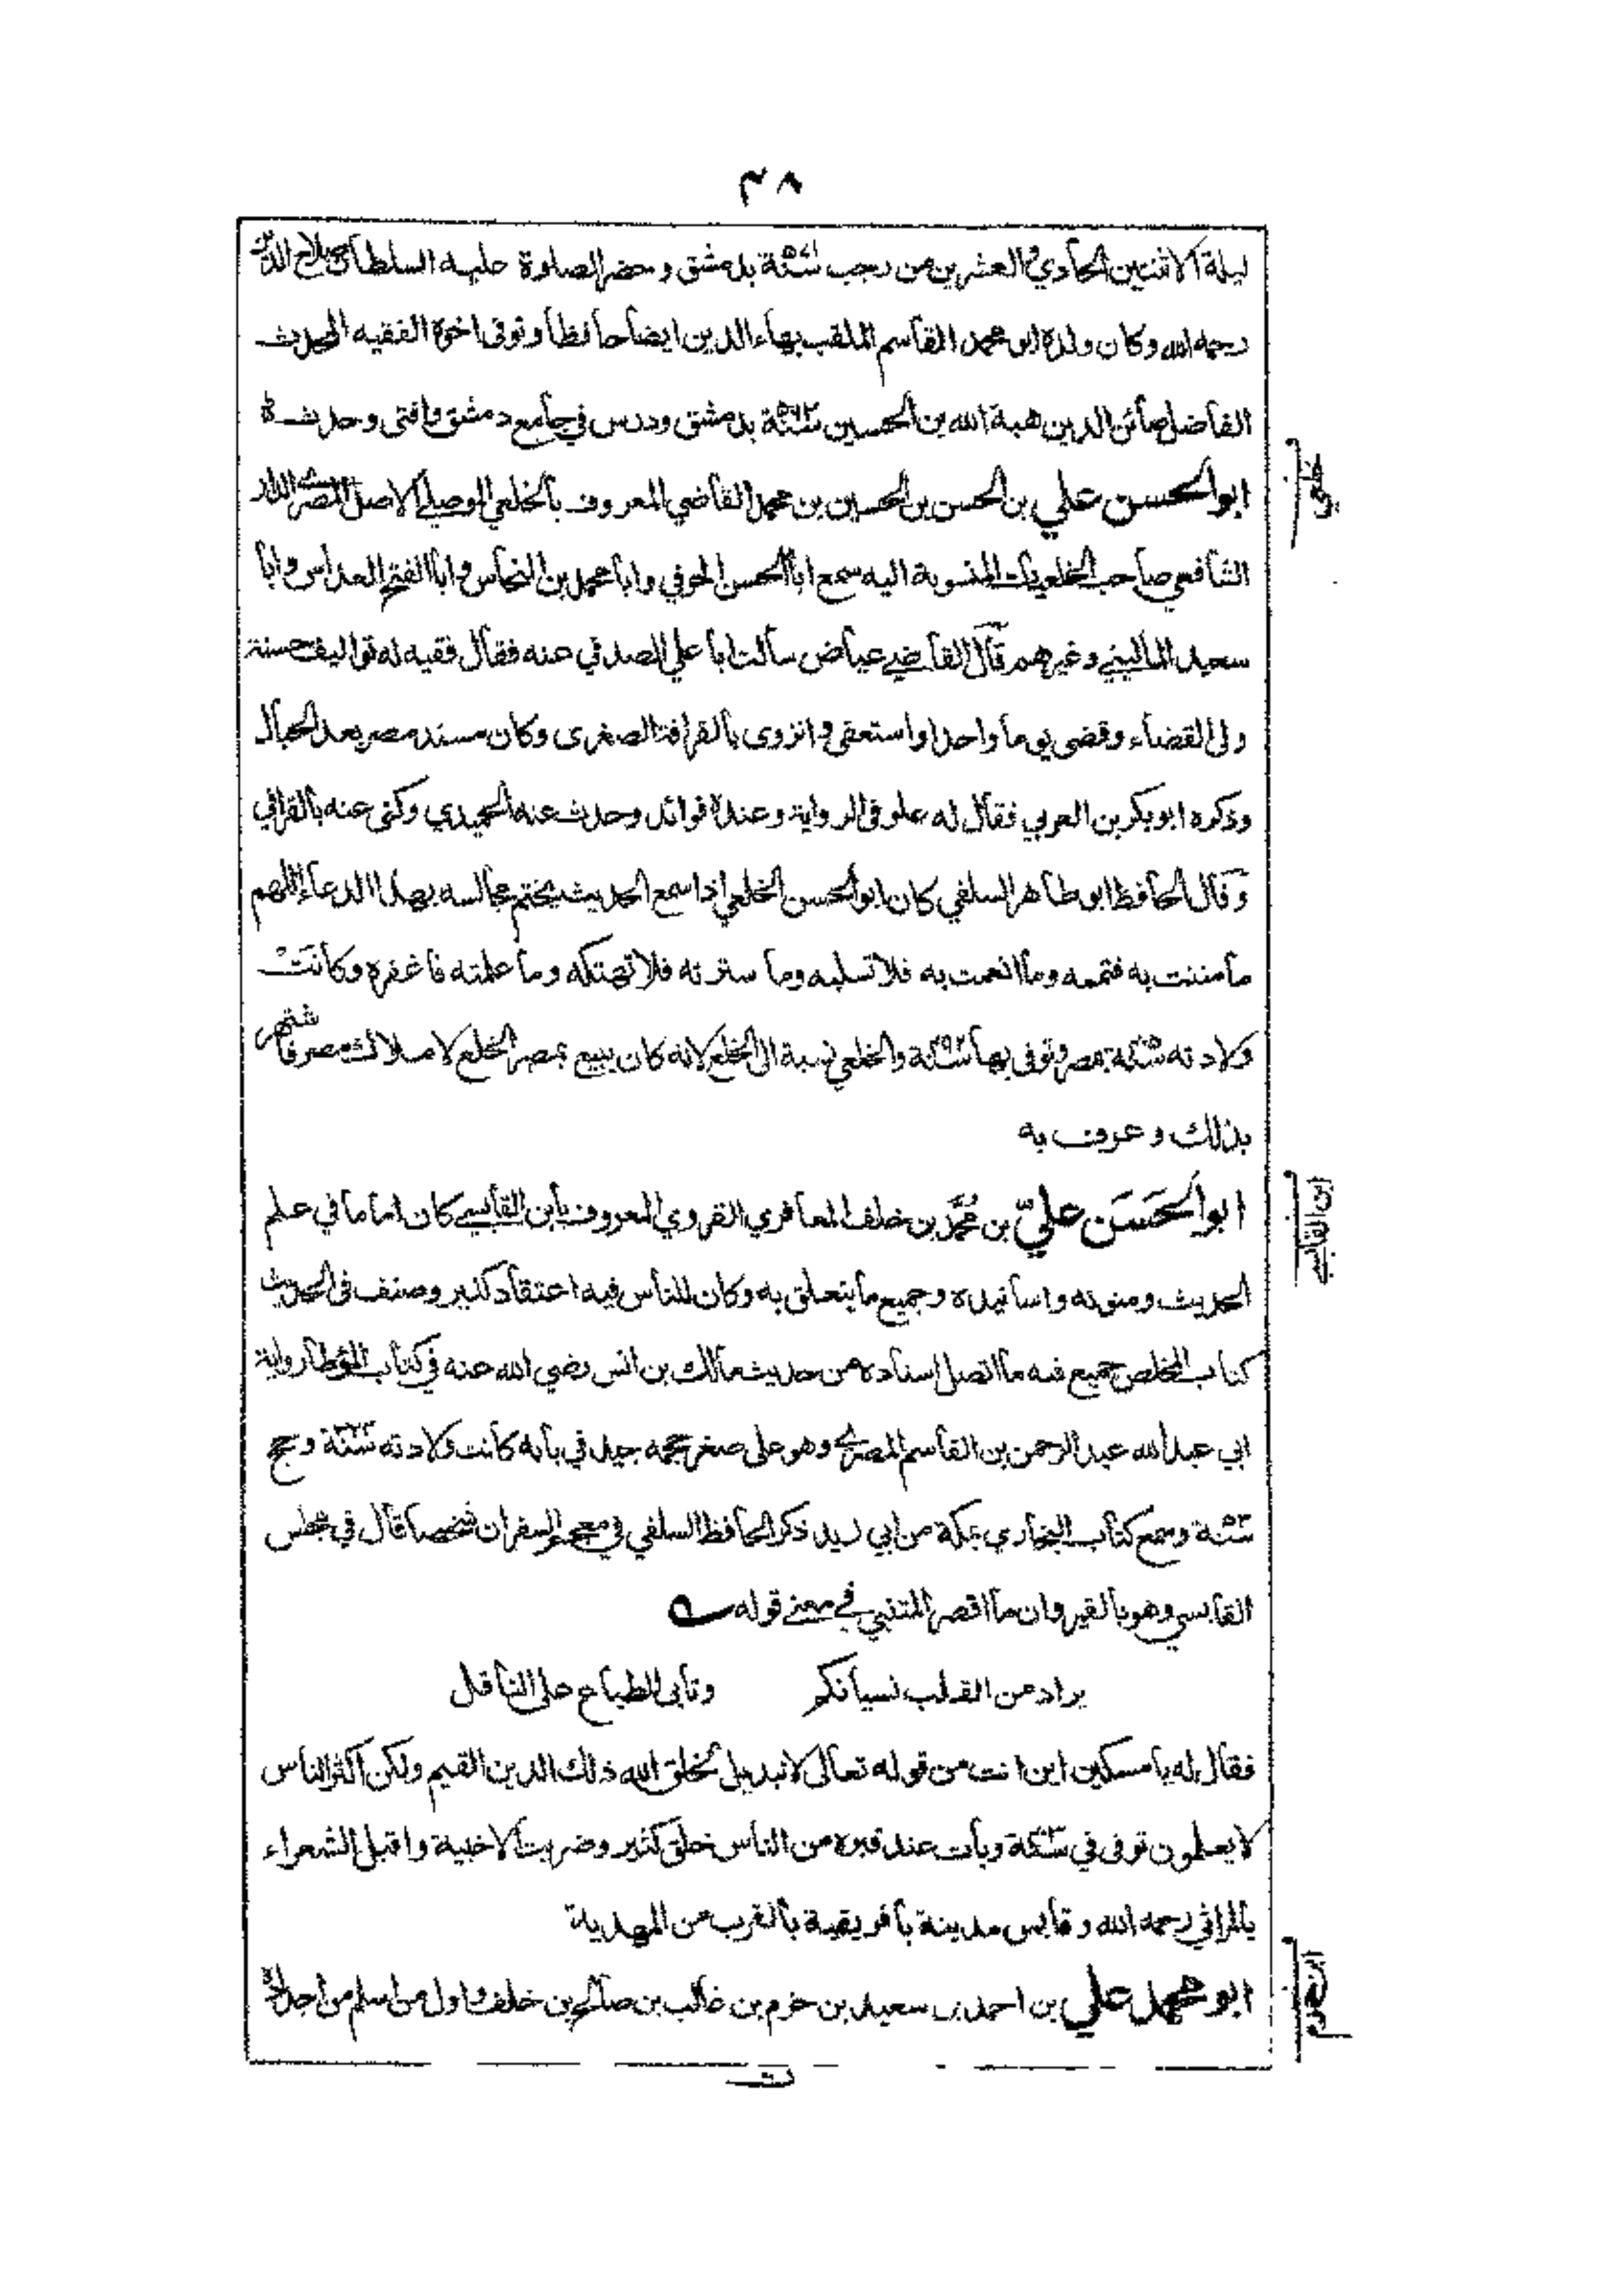 ٣٨
ليلة الاثنين الحادي والعشرين من رجب سنة بدمشق وحضر الصلوة عليه السلطان صلاح الدين
رحمه الله وكان ولده ابو محمد القاسم الملقب بهاء الدين ايضا حافظا وتوفى اخوه الفقيه المحدث
الفاضل صائن الدين هبة الله بن الحسين سنة بدمشق ودرس في جامع دمشق وافتى وحدث
ابو الحسن علي بن الحسن بن الحسين بن محمد القاضي المعروف بالخلعي الموصلي الاصل المصري الدار
الشافعي صاحب الخلعيات المنسوبة اليه سمع ابا الحسن الحوفي وابا محمد بن النحاس وابا الفتح العداس وابا
سعيد الماليني وغيرهم قال القاضي عياض سألت ابا علي الصدفي عنه فقال فقيه له تواليف حسنة
ولى القضاء وقضى يوما واحدا واستعفى وانزوى بالقرافة الصغرى وكان مسند مصر بعد الحبال
وذكره ابو بكر بن العربي فقال له علو في الرواية وعنده فوائد وحدث عنه الحميدي وكنى عنه بالقرافي
وقال الحافظ ابو طاهر السلفي كان ابو الحسن الخلعي اذا سمع الحديث يختم مجالسه بهذا الدعاء اللهم
ما مننت به فتممه وما انعمت به فلا تسلبه وما سترته فلا تهتكه وما علمته فاغفره وكانت
ولادته سنة بمصر وتوفى بها سنة والخلعي نسبة الى الخلع لانه كان يبيع بمصر الخلع لاملاك مصر فاشتهر
بذلك وعرف به
ابو الحَسَن عليّ بن مُحَمَّد بن خلف المعافري القروي المعروف بابن القابسي كان اماما في علم
الحديث ومتونه واسانيده وجميع ما يتعلق به وكان للناس فيه اعتقاد كثير وصنف في الحديث
كتاب الملخص جميع فيه ما اتصل اسناده من حديث مالك بن انس رضي الله عنه في كتاب الموطا رواية
ابي عبد الله عبد الرحمن بن القاسم المصري وهو على صغر حجمه جيد في بابه كانت ولادته سنة وحج
سنة وسمع كتاب البخاري بمكة من ابي زيد ذكر الحافظ السلفي في معجم السفر ان شخصا قال في مجلس
القابسي وهو بالقيروان ما اقصر المتنبي في معنى قوله
يراد من القلب نسيانكم وتأبى الطباع على الناقل
فقال له يا مسكين اين انت من قوله تعالى لا تبديل لخلق الله ذلك الدين القيم ولكن اكثر الناس
لا يعلمون توفى في سنة وبات عند قبره من الناس خلق كثير وضربت الاخبية واقبل الشعراء
بالمراثي رحمه الله وقابس مدينة بافريقية بالقرب من المهدية
ابو محمد علي بن احمد بن سعيد بن حزم بن غالب بن صالح بن خلف واول من اسلم من اجداده
ابن القابسي
ابن حزم